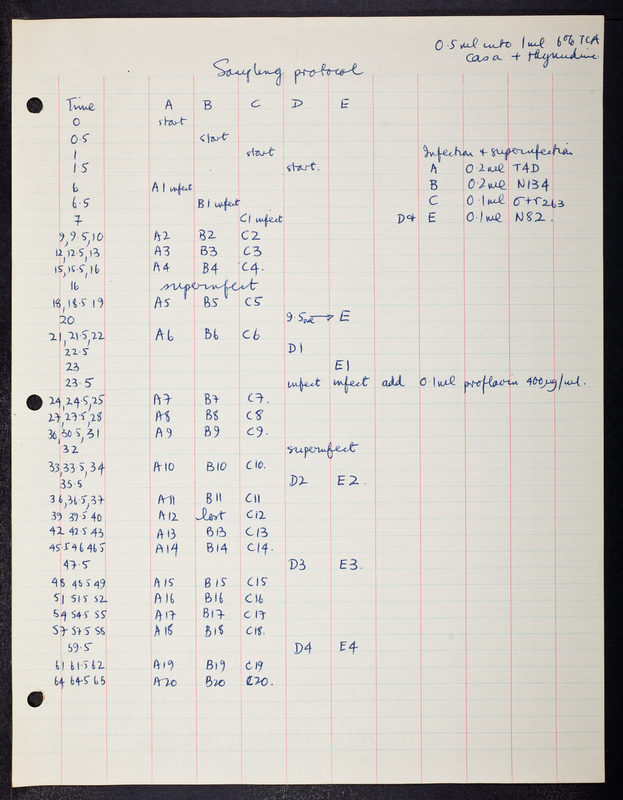 0.5 ml into 1 ml 6% TCA
Casa + thymidine
Sampling protocol
Time A B C D E
0 start
0.5 start
1 start Infection + superinfection
1.5 start. A 0.2 ml T4D
6 A1 infect B 0.2 ml N134
6.5 B1 infect C 0.1 ml
7 C1 infect D+ E 0.1 ml N82.
9, 9.5, 10 A2 B2 C2
12, 12.5, 13 A3 B3 C3
15, 15.5, 16 A4 B4 C4.
16 superinfect
18, 18.5 19 A5 B5 C5
20 9.5 ml → E
21, 21.5, 22 A6 B6 C6
22.5 D1
23 E1
23.5 infect infect add 0.1 ml proflavin 400 µg/ml.
24, 24.5, 25 A7 B7 C7.
27, 27.5, 28 A8 B8 C8
30, 30.5, 31 A9 B9 C9.
32 superinfect
33, 33.5, 34 A10 B10 C10.
35.5 D2 E2.
36, 36.5, 37 A11 B11 C11
39 39.5 40 A12 lost C12
42 42.5 43 A13 B13 C13
45.5 46 46.5 A14 B14 C14.
47.5 D3 E3.
48 48.5 49 A15 B15 C15
51 51.5 52 A16 B16 C16
54 54.5 55 A17 B17 C17
57 57.5 58 A18 B18 C18.
59.5 D4 E4
61 61.5 62 A19 B19 C19
64 64.5 65 A20 B20 C20.